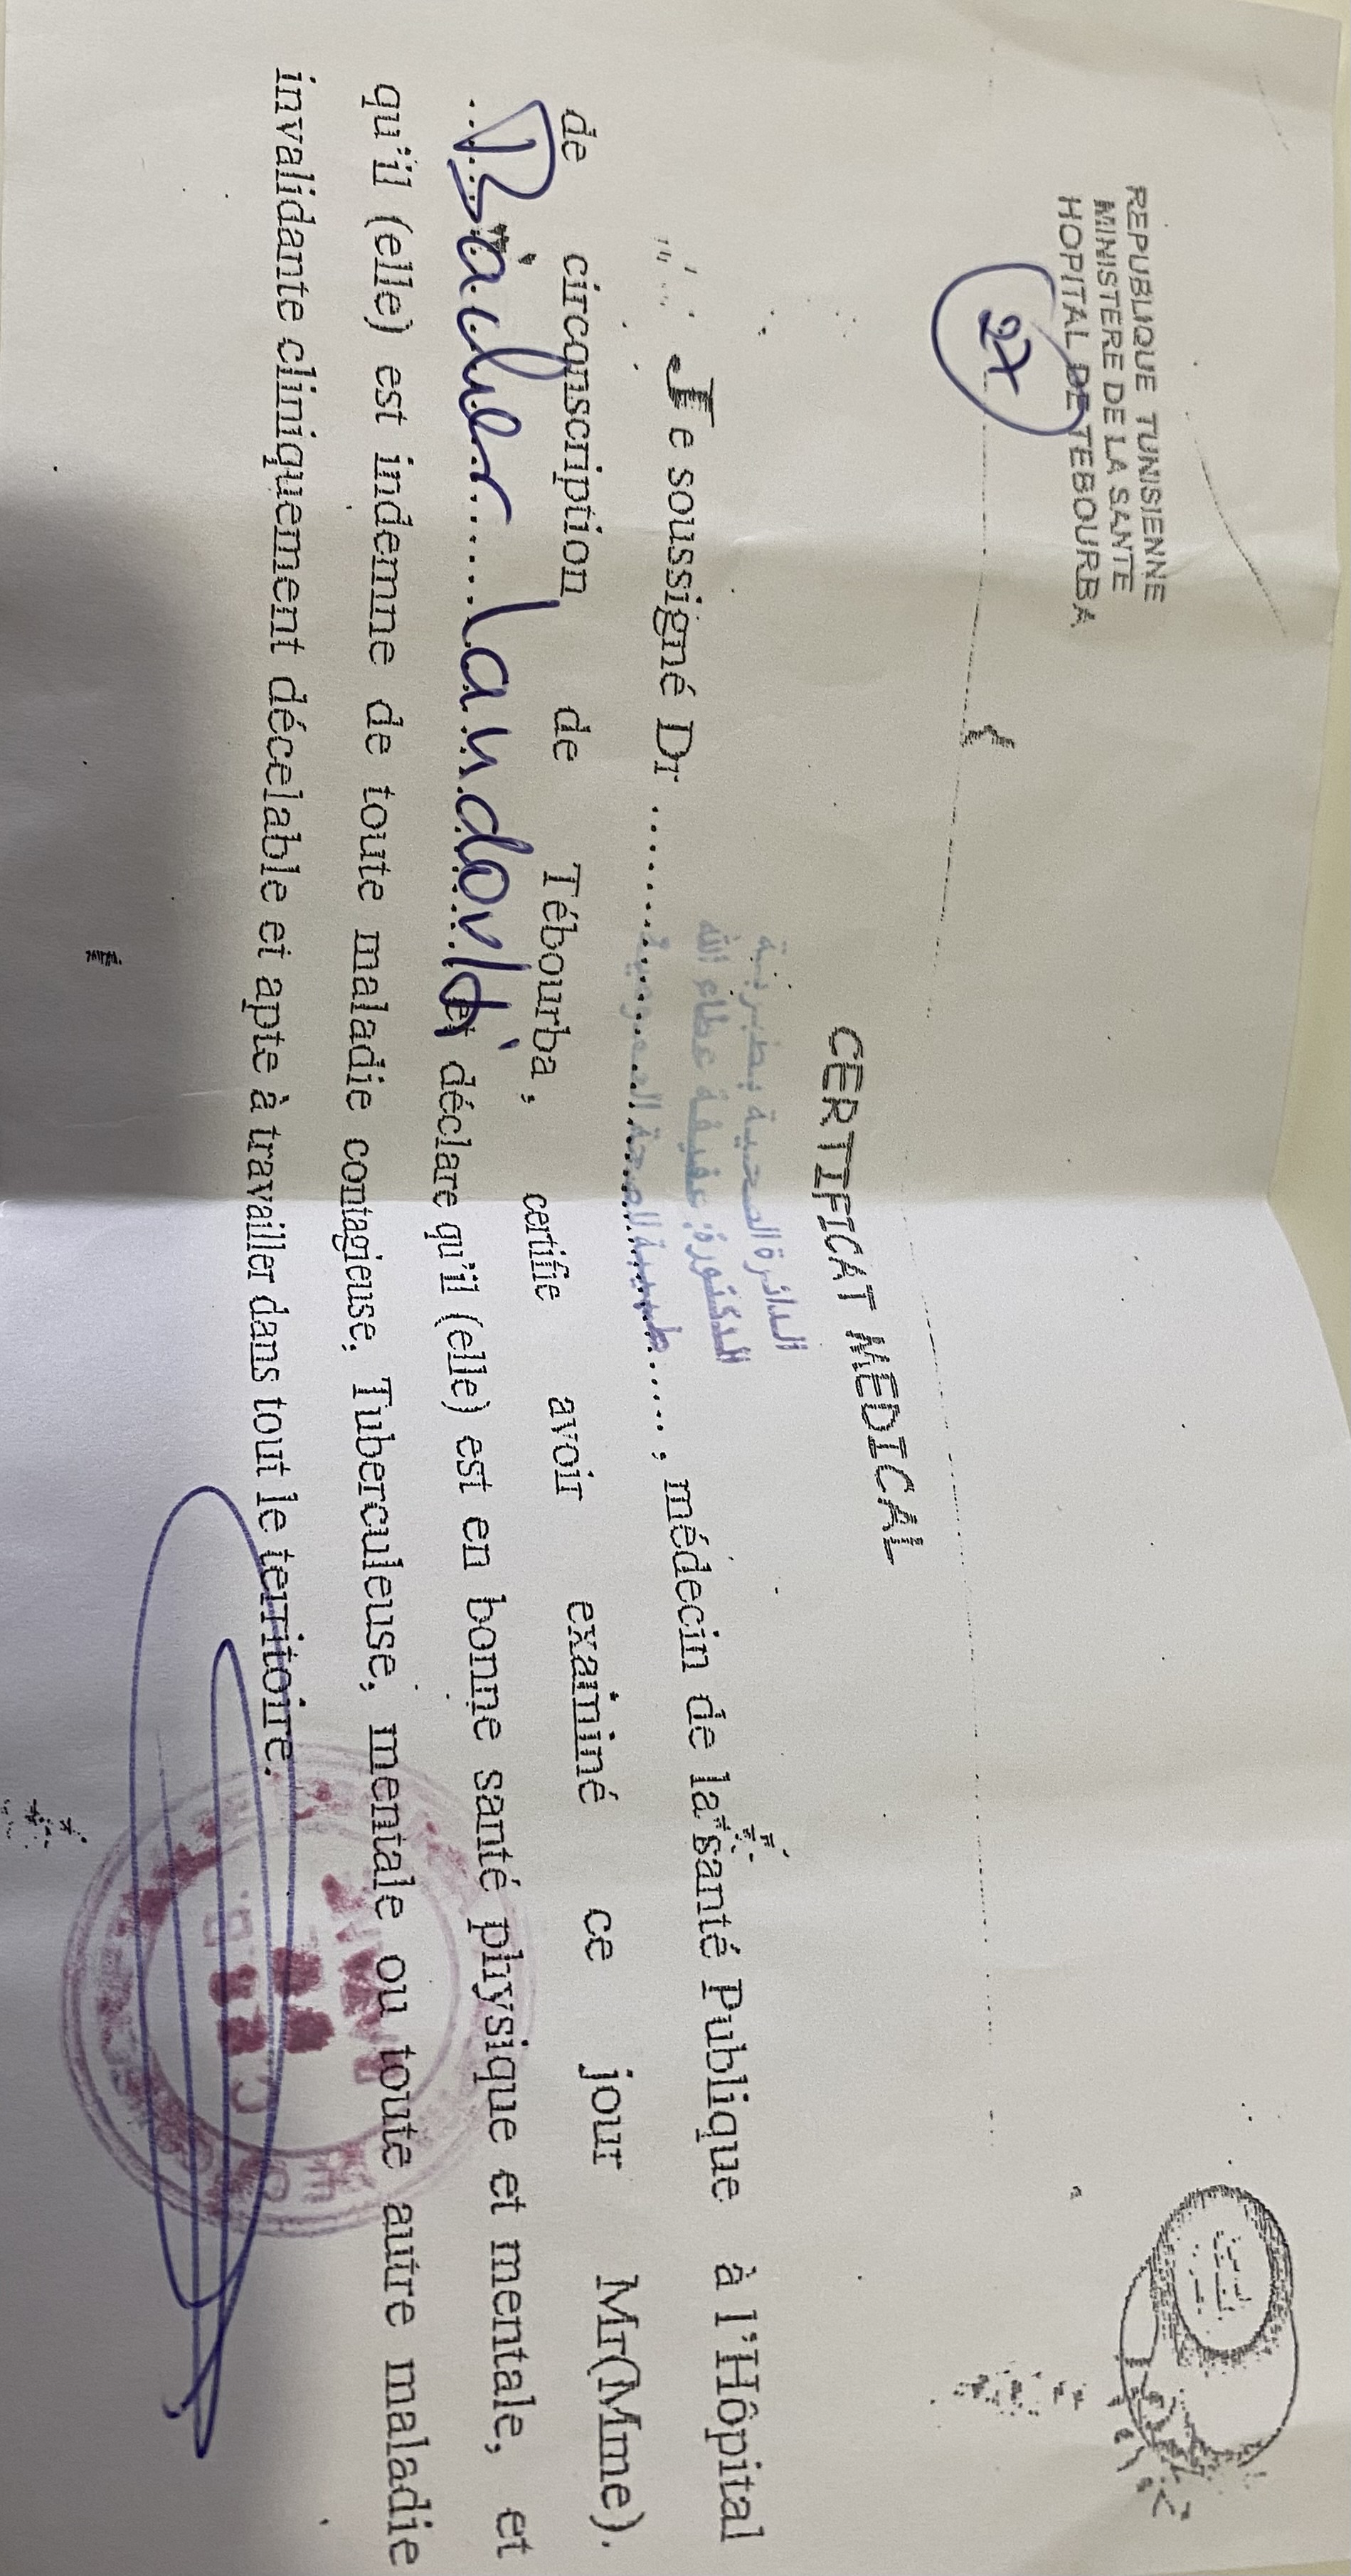 REPUBLIQUE TUNISIENNE
MINISTERE DE LA SANTE
HOPITAL DE TEBOURBA
27
CERTIFICAT MEDICAL
الدائرة الصحية بطبربة
الدكتورة: عفيفة عطاء الله
طبيبة للصحة العمومية
Je soussigné Dr ................................, médecin de la santé Publique à l'Hôpital
de circonscription de Tébourba, certifie avoir examiné ce jour Mr(Mme).
et déclare qu'il (elle) est en bonne santé physique et mentale, et
qu'il (elle) est indemne de toute maladie contagieuse, Tuberculeuse, mentale ou toute autre maladie
invalidante cliniquement décelable et apte à travailler dans tout le territoire.